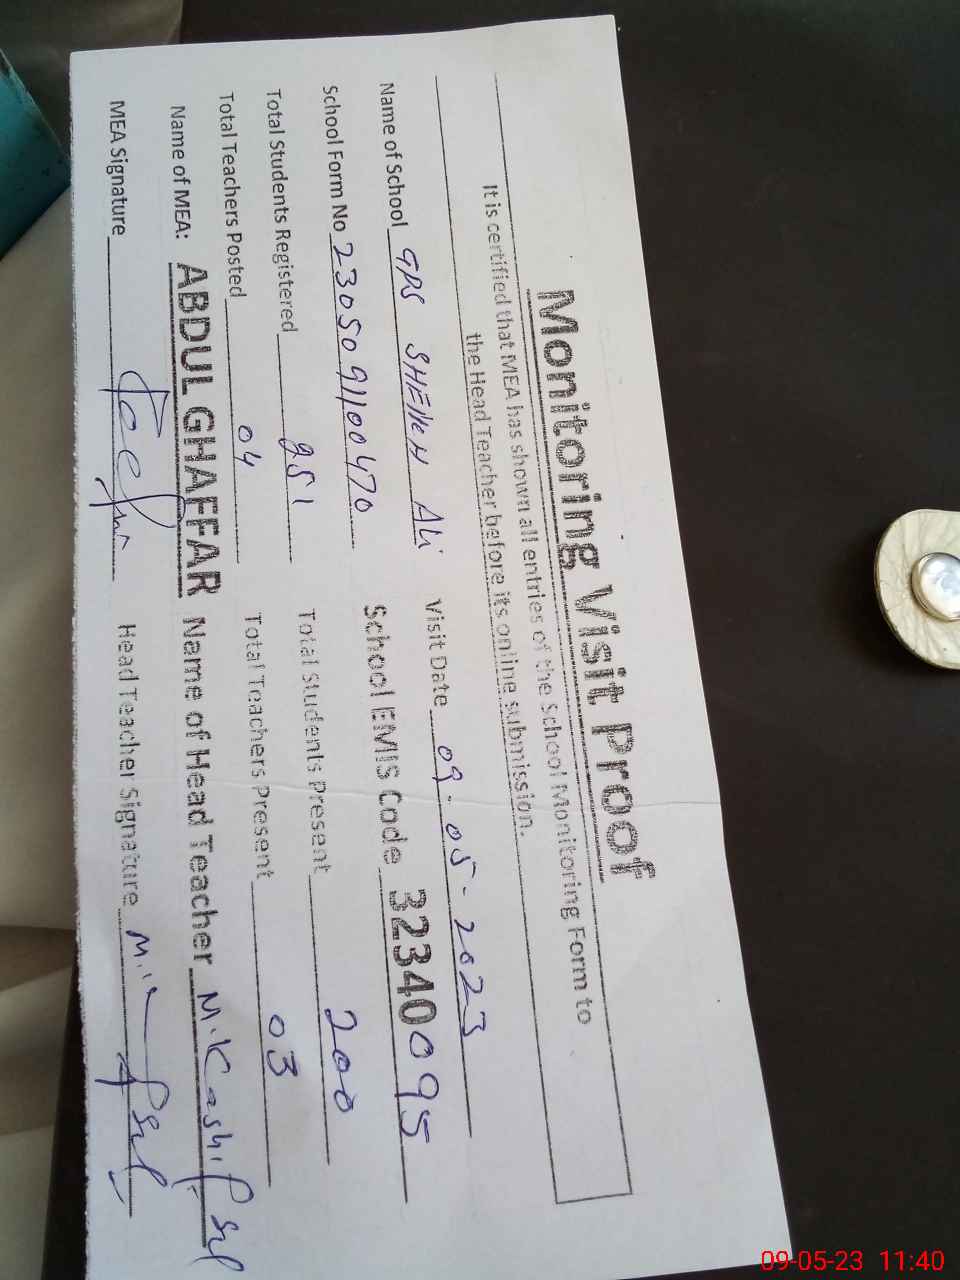 Monitoring Visit Proof
It is certified that MEA has shown all entries of the School Monitoring Form to
the Head Teacher before its online submission.
Name of School GPS SHEIKH Ali Visit Date 09-05-2023
School Form No 2305091100470 School EMIS Code 32340095
Total Students Registered 251 Total Students Present 200
Total Teachers Posted 04 Total Teachers Present 03
Name of MEA: ABDUL GHAFFAR Name of Head Teacher M. Kashif
MEA Signature Head Teacher Signature
09-05-23 11:40